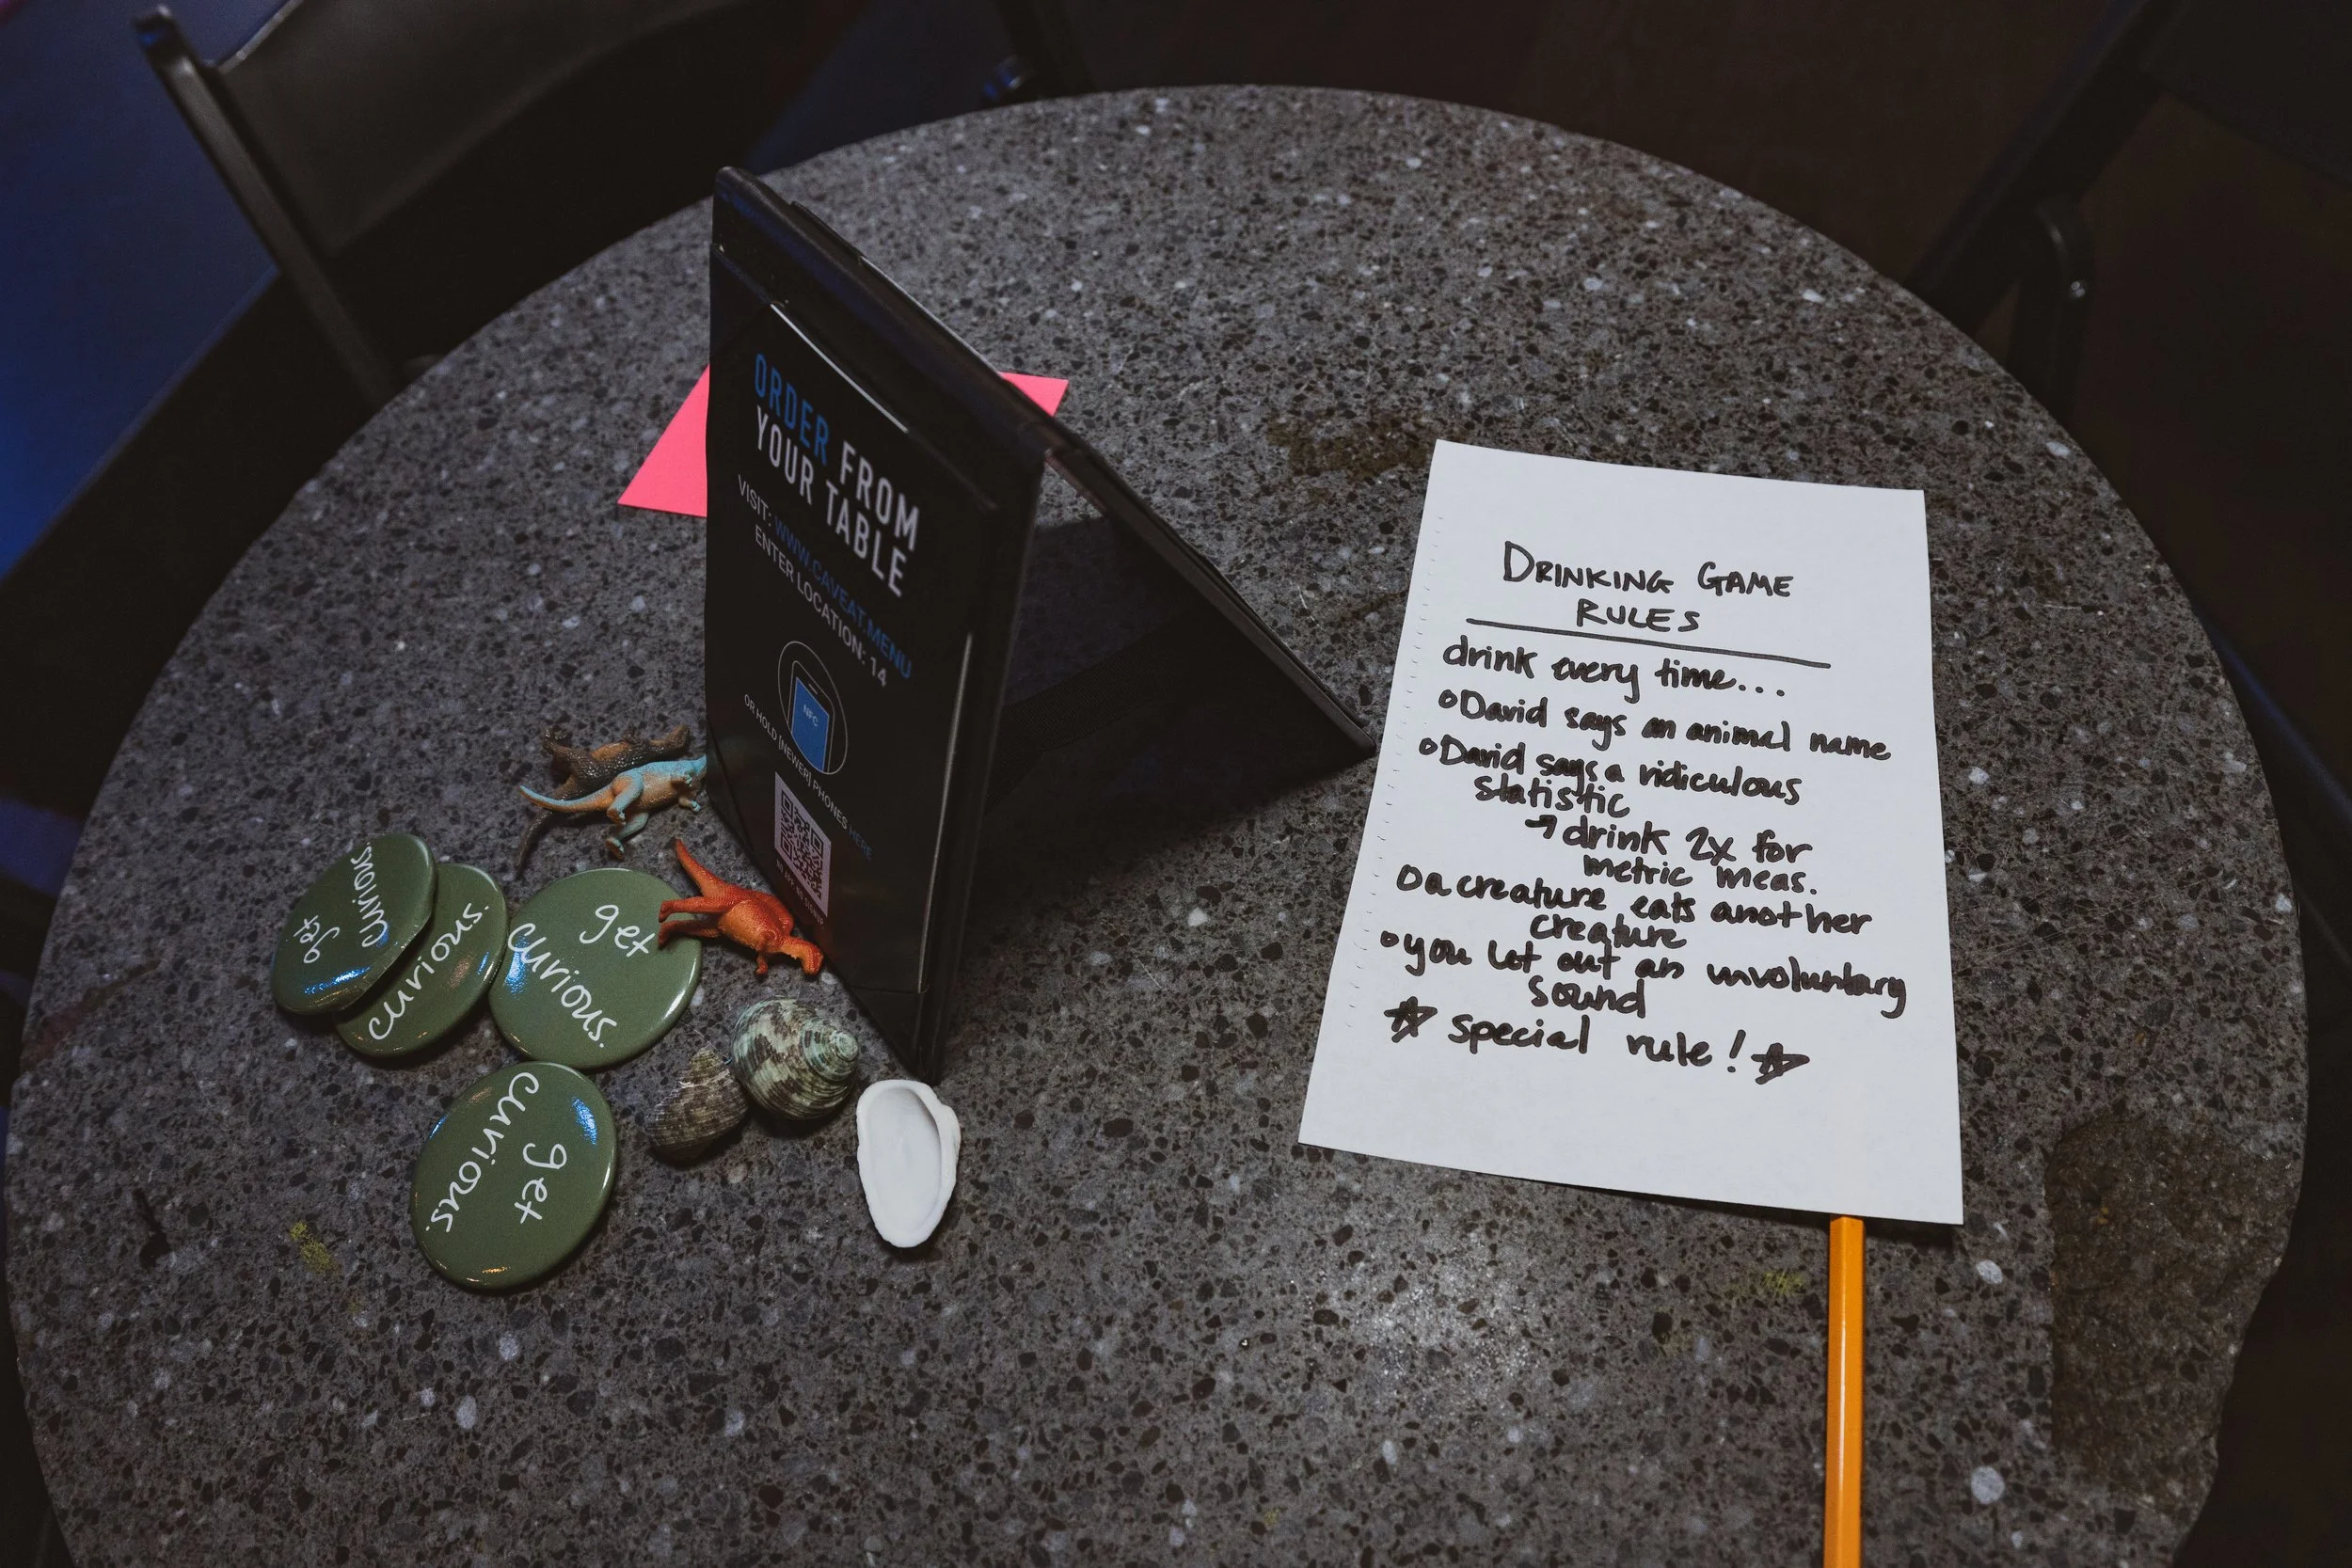 ORDER FROM
YOUR TABLE
VISIT: WWW.CAVEAT.MENU
ENTER LOCATION: 14
NFC
OR HOLD (NEWER) PHONES HERE
get
curious.
curious.
get
curious.
get
curious.
DRINKING GAME
RULES
drink every time...
David says an animal name
David says a ridiculous
statistic
→ drink 2x for
metric meas.
a creature eats another
creature
you let out an involuntary
sound
☆ special rule! ☆